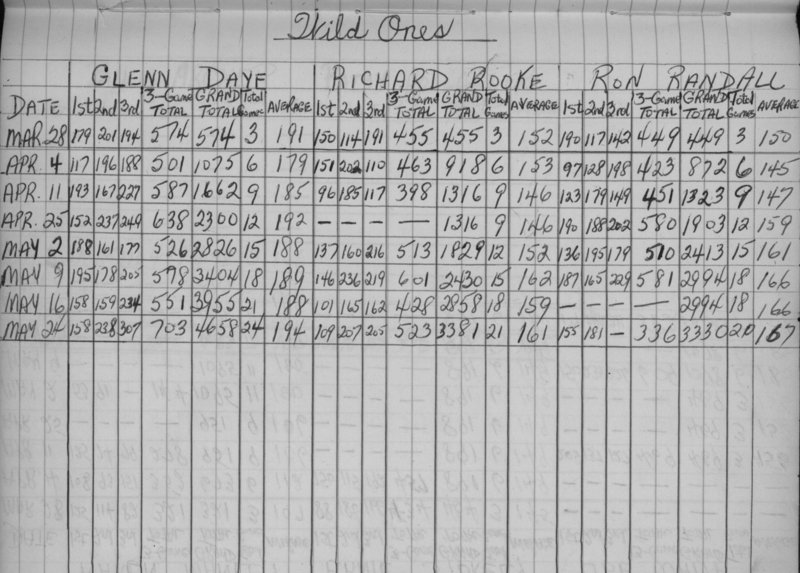 Wild Ones
GLENN DAYE RICHARD ROOKE RON RANDALL
DATE 1st 2nd 3rd 3-Game TOTAL GRAND TOTAL Total Games AVERAGE 1st 2nd 3rd 3-Game TOTAL GRAND TOTAL Total Games AVERAGE 1st 2nd 3rd 3-Game TOTAL GRAND TOTAL Total Games AVERAGE
MAR 28 179 201 194 574 574 3 191 150 114 191 455 455 3 152 190 117 142 449 449 3 150
APR. 4 117 196 188 501 1075 6 179 151 202 110 463 918 6 153 97 128 198 423 872 6 145
APR. 11 193 167 227 587 1662 9 185 96 185 117 398 1316 9 146 123 179 149 451 1323 9 147
APR. 25 152 237 249 638 2300 12 192 – – – – 1316 9 146 190 188 202 580 1903 12 159
MAY 2 188 161 177 526 2826 15 188 137 160 216 513 1829 12 152 136 195 179 510 2413 15 161
MAY 9 195 178 205 578 3404 18 189 146 236 219 601 2430 15 162 187 165 229 581 2994 18 166
MAY 16 158 159 234 551 3955 21 188 101 165 162 428 2858 18 159 – – – – 2994 18 166
MAY 24 158 238 307 703 4658 24 194 109 207 205 523 3381 21 161 155 181 – 336 3330 20 167